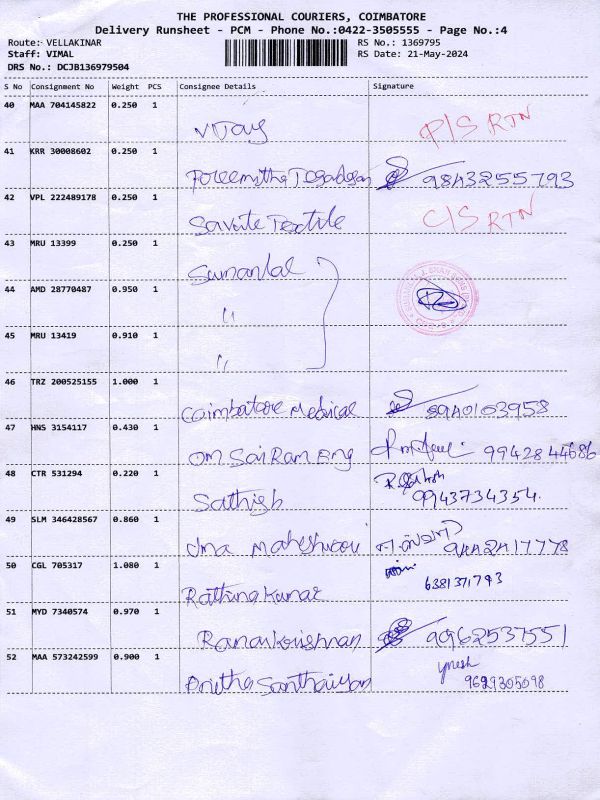 THE PROFESSIONAL COURIERS, COIMBATORE
Delivery Runsheet - PCM - Phone No.:0422-3505555 - Page No.:4
Route: VELLAKINAR
RS No.: 1369795
Staff: VIMAL
RS Date: 21-May-2024
DRS No.: DCJB136979504
S No Consignment No Weight PCS Consignee Details Signature
40 MAA 704145822 0.250 1
Vijay P/S RTN
41 KRR 30008602 0.250 1
9843255793
42 VPL 222489178 0.250 1
Textile C/S RTN
43 MRU 13399 0.250 1
Sumanlal
44 AMD 28770487 0.950 1
"
45 MRU 13419 0.910 1
"
46 TRZ 200525155 1.000 1
Coimbatore Medical 8940103958
47 HNS 3154117 0.430 1
Om Sai Ram Eng 9942844686
48 CTR 531294 0.220 1
Sathish 9943734354.
49 SLM 346428567 0.860 1
Uma Maheshwari 9442417778
50 CGL 705317 1.080 1
Rathinakumar 6381371793
51 MYD 7340574 0.970 1
Ramakrishnan 9096253755 1
52 MAA 573242599 0.900 1
9629305098